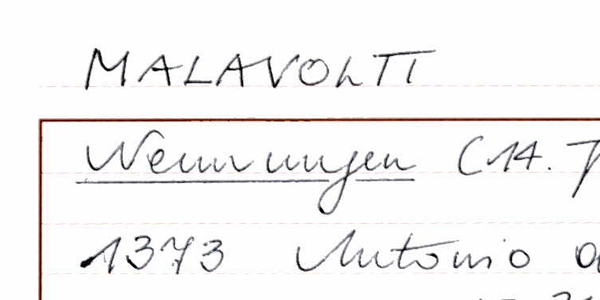 MALAVOLTI
Nennungen (14. J
1373 Antonio